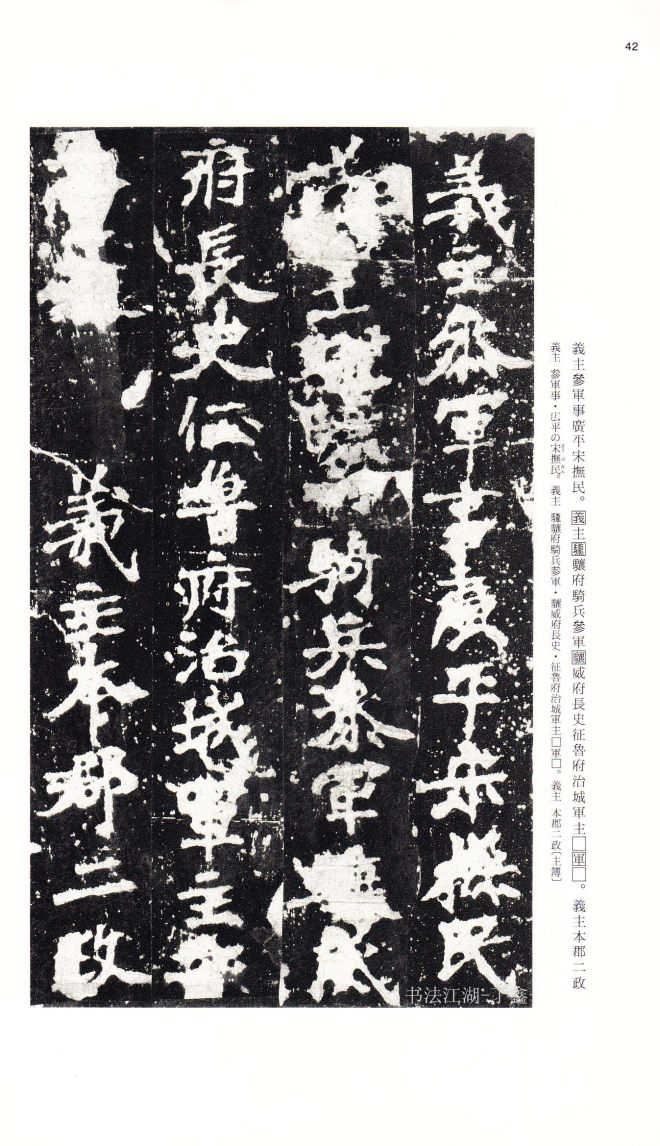 42
義主叅軍事廣平宋撫民
主 騎兵叅軍 威
府長史征魯府治城軍主
義主本郡二政
義主參軍事廣平宋撫民。義主驃驤府騎兵參軍驤威府長史征魯府治城軍主□軍□。義主本郡二政
義主 参軍事・広平の宋撫民。義主 驤府騎兵参軍・驤威府長史・征魯府治城軍主□軍□。義主 本郡二政〔主簿〕
书法江湖-丁鑫